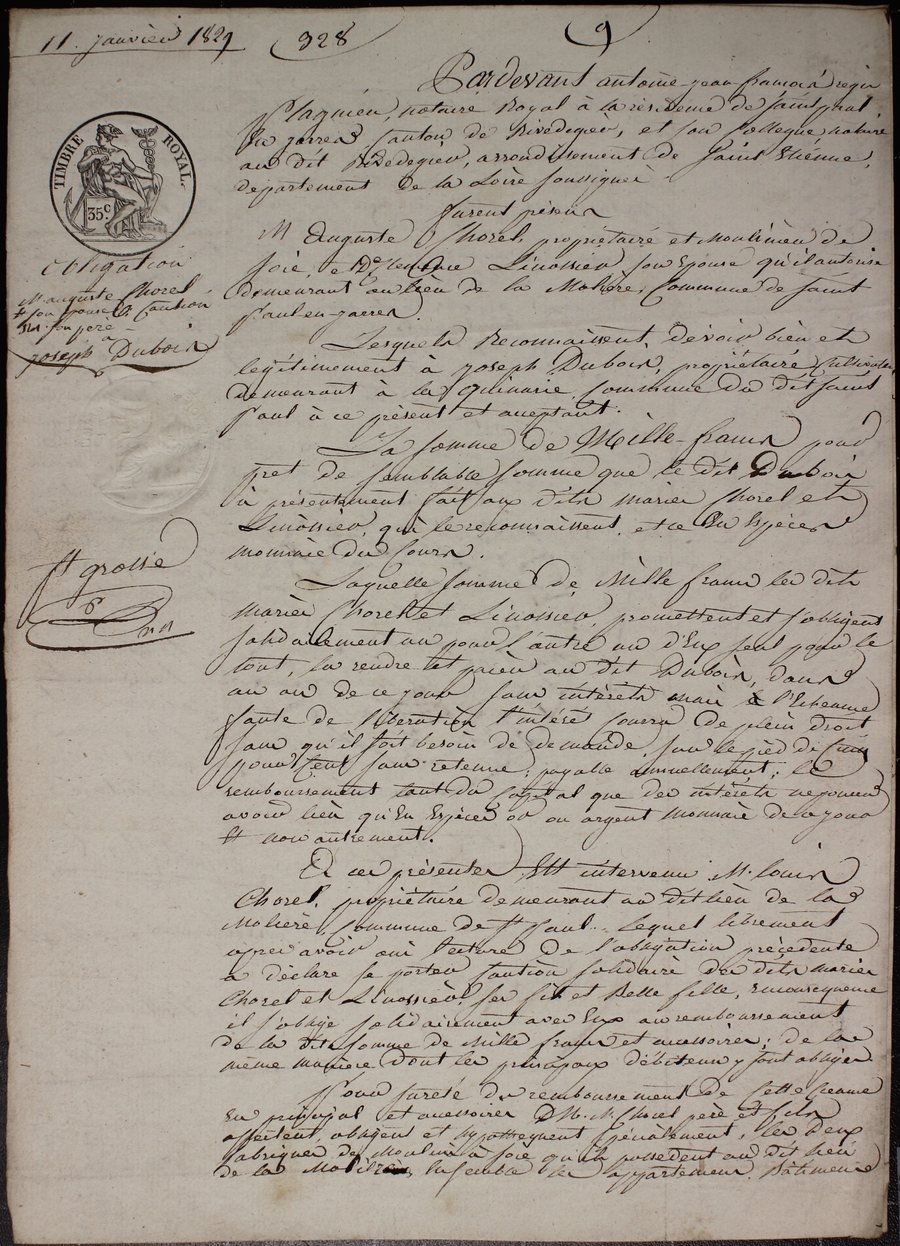 11. Janvier 1829
328
9
TIMBRE ROYAL.
35c
Obligation
M. auguste Chorel
& son Epouse & Caution
son père
à
joseph Duboin
ft grosse
Pardevant antoine jean françois
notaire Royal à la résidence de saint paul
En jarrea Canton de Rivedegier, et son Collegue notaire
au dit Rivedegier, arrondissement de Saint Etienne,
département de la Loire soussignés
furent présens
M Auguste Chorel, propriétaire et Moulinier de
soie, et Linossier son Epouse qu'il autorise
demeurant au lieu de la Molière, Commune de Saint
Paul en jarrea.
Lesquels Reconnaissent, devoir bien et
légitimement à joseph Duboin, propriétaire Cultivateur
demeurant à la quinarie, Commune du dit Saint
Paul à ce présent et acceptant.
La somme de Mille francs pour
prêt de semblable somme que le dit Duboin
à présentement fait aux dits mariés Chorel et
Linossier, qui le reconnaissent, et ce En Espèces
monnaie du Cours.
Laquelle somme de Mille francs les dits
mariés Chorel et Linossier, promettent et s'obligent
solidairement un pour l'autre un d'Eux seul pour le
tout, la rendre et payer au dit Duboin, dans
un an de ce jour sans intérêts mais à l'Echeance
faute de libération l'intérêt courra de plein droit
sans qu'il soit besoin de demande, sur le pied de Cinq
pour Cent sans retenue; payable annuellement; le
remboursement tant du Capital que des intérêts ne pourra
avoir lieu qu'En Espèces or ou argent monnaie de ce jour
& non autrement.
A ces présentes Est intervenu M. louis
Chorel, propriétaire demeurant au dit lieu de la
Molière, Commune de St Paul. lequel librement
après avoir oui lecture de l'obligation précédente
a déclaré se porter Caution solidaire des dits mariés
Chorel et Linossier, ses fils et Belle fille, En conséquence
il s'oblige solidairement avec Eux au remboursement
de la dite somme de Mille francs et accessoires; de la
même manière dont les principaux débiteurs y sont obligés
Pour sureté du remboursement de Cette Creance
En principal et accessoires M. M. Chorel père et fils
affectent, obligent et hypothequent spécialement, les deux
fabriques de Moulin à soie qu'ils possedent au dit lieu
de la Molière, Ensemble les appartemens, Bâtimens